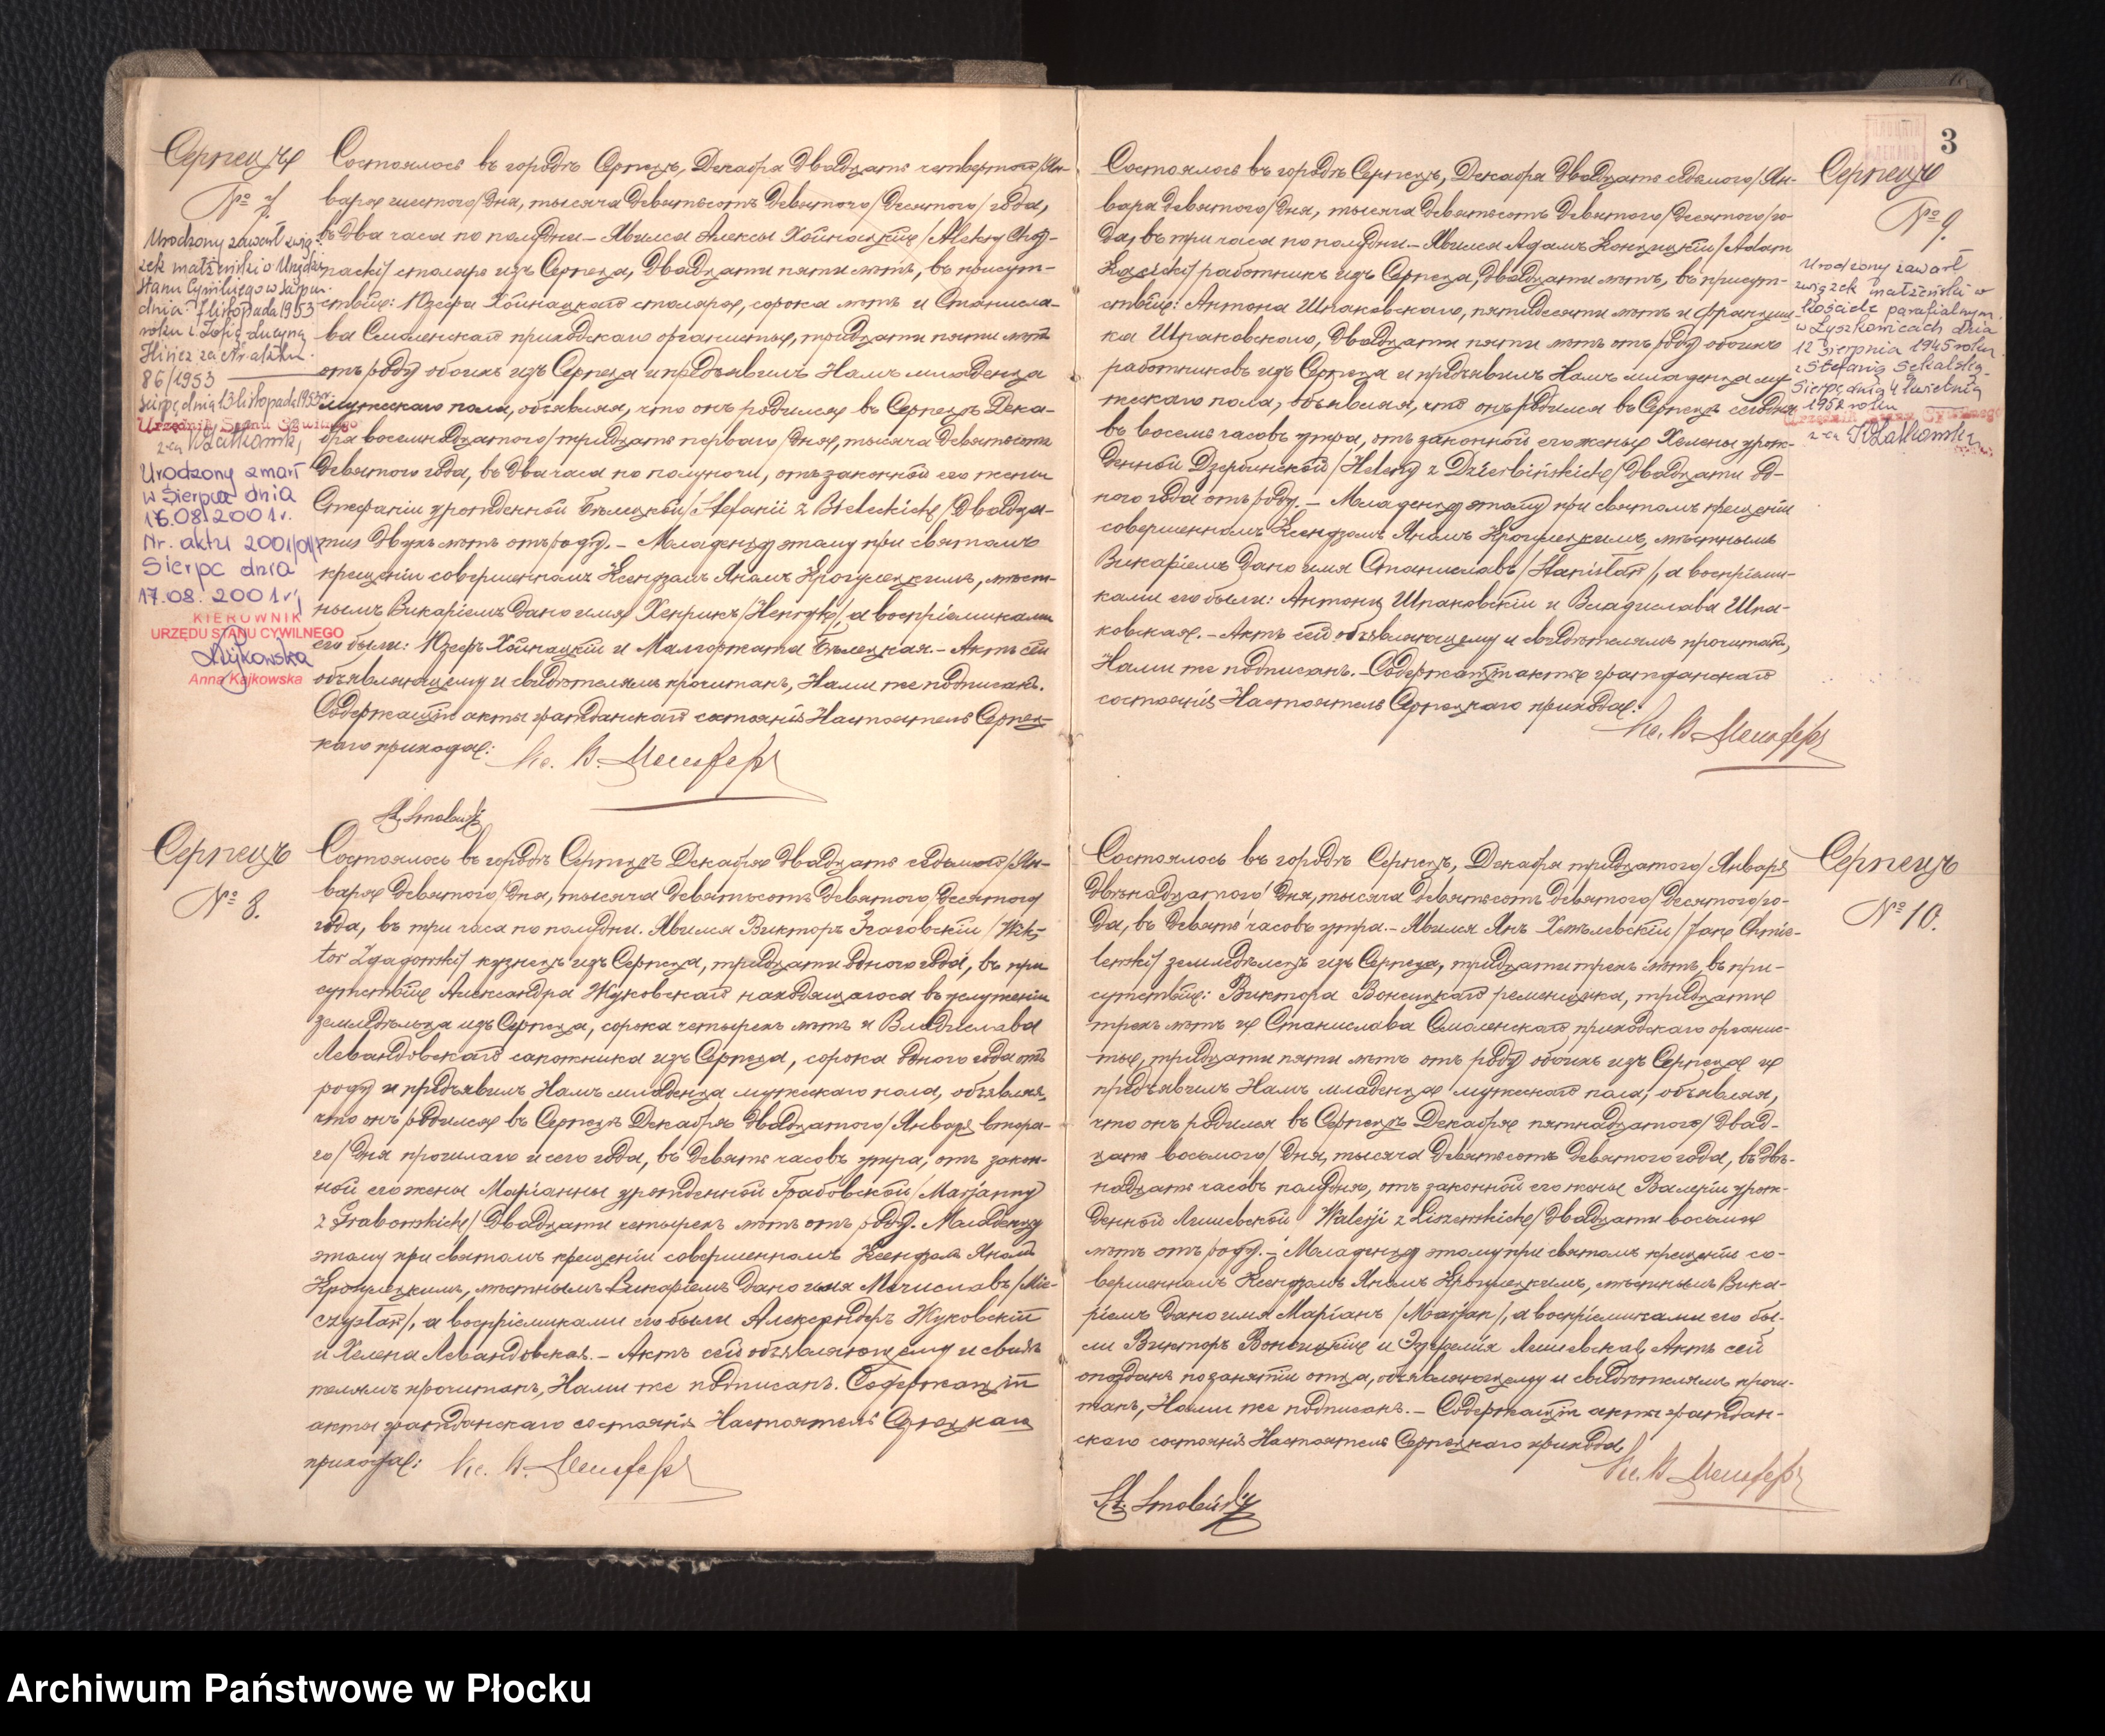 Серпецъ
№ 7.
Urodzony zawarł zwią-
zek małżeński o Urzędzie
Stanu Cywilnego w Sierpcu
dnia 7 listopada 1953
roku z Zofią Lucyną
za Nr aktu
86/1953
Sierpc dnia 13 listopada 1953 r.
Urzędnik Stanu Cywilnego
Urodzony zmarł
w Sierpcu dnia
16.08.2001 r.
Nr. aktu 2001/
Sierpc dnia
17.08.2001 r.
KIEROWNIK
URZĘDU STANU CYWILNEGO
AKajkowska
Anna Kajkowska
Состоялось въ городѣ Серпецѣ, Декабря двадцать четвертаго /Ян-
варя шестого/ дня, тысяча девятьсотъ девятого /десятого/ года,
въ два часа по полудни. – Явился Алексы Хойнацкій /Aleksy Choj-
nacki/ столяръ изъ Серпеца, двадцати пяти лѣтъ, въ присут-
ствіи: Юзефа Хойнацкаго столяра, сорока лѣтъ и Станисла-
ва Смоленскаго приходскаго органисты, тридцати пяти лѣтъ
отъ роду обоихъ изъ Серпеца и предъявилъ Намъ младенца
мужескаго пола, объявляя, что онъ родился въ Серпецѣ Дека-
бря восемнадцатого /тридцать перваго/ дня, тысяча девятьсотъ
девятого года, въ два часа по полуночи, отъ законной его жены
Стефаніи урожденной Бѣлецкой /Stefanii z Bieleckich/ двадца-
ти двухъ лѣтъ отъ роду. – Младенцу этому при святомъ
крещеніи совершенномъ Ксендзомъ Яномъ Крогулецкимъ, мѣст-
нымъ Викаріемъ дано имя Хенрикъ /Henryk/, а воспріемниками
его были: Юзефъ Хойнацкій и Малгоржата Бѣлецкая. – Актъ сей
объявляющему и свидѣтелямъ прочитанъ, Нами же подписанъ.
Содержащій акты гражданскаго состоянія Настоятель Серпец-
каго прихода:
St. Smoleński
Серпецъ
№ 8.
Состоялось въ городѣ Серпецѣ Декабря двадцать седьмого /Ян-
варя девятого/ дня, тысяча девятьсотъ девятого /десятого/
года, въ три часа по полудни. Явился Викторъ Згаговскій /Wik-
tor Zgagowski/ кузнецъ изъ Серпеца, тридцати одного года, въ при
сутствіи Александра Жуковскаго находящагося въ услуженіи
земледѣльца изъ Серпеца, сорока четырехъ лѣтъ и Владислава
Левандовскаго сапожника изъ Серпеца, сорока одного года отъ
роду и предъявилъ Намъ младенца мужескаго пола, объявляя,
что онъ родился въ Серпецѣ Декабря двадцатого /Января второ-
го/ дня прошлаго и сего года, въ девять часовъ утра, отъ закон-
ной его жены Маріанны урожденной Грабовской /Marjanny
z Grabowskich/ двадцати четырехъ лѣтъ отъ роду. Младенцу
этому при святомъ крещеніи совершенномъ Ксендзомъ Яномъ
Крогулецкимъ, мѣстнымъ Викаріемъ дано имя Мечиславъ /Mie-
czysław/, а воспріемниками его были Александеръ Жуковскій
и Хелена Левандовская. – Актъ сей объявляющему и свидѣ
телямъ прочитанъ, Нами же подписанъ. Содержащій
акты гражданскаго состоянія Настоятель Серпецкаго
прихода:
3
Состоялось въ городѣ Серпецѣ, Декабря двадцать седьмого /Ян-
варя девятого/ дня, тысяча девятьсотъ девятого /десятого/ го-
да, въ три часа по полудни. – Явился Адамъ Кензицкій /Adam
Kęsicki/ работникъ изъ Серпеца, двадцати лѣтъ, въ присут-
ствіи: Антона Шпаковскаго, пятидесяти лѣтъ и Францишка
Шпаковскаго, двадцати пяти лѣтъ отъ роду обоихъ
работниковъ изъ Серпеца и предъявилъ Намъ младенца му-
жескаго пола, объявляя, что онъ родился въ Серпецѣ сегодня
въ восемь часовъ утра, отъ законной его жены Хелены урож-
денной Дзербинской /Heleny z Dzierbińskich/ двадцати од-
ного года отъ роду. – Младенцу этому при святомъ крещеніи
совершенномъ Ксендзомъ Яномъ Крогулецкимъ, мѣстнымъ
Викаріемъ дано имя Станиславъ /Stanisław/, а воспріемни-
ками его были: Антони Шпаковскій и Владислава Шпа-
ковская. – Актъ сей объявляющему и свидѣтелямъ прочитанъ,
Нами же подписанъ. – Содержащій акты гражданскаго
состоянія Настоятель Серпецкаго прихода:
Серпецъ
№ 9.
Urodzony zawarł
związek małżeński w
Kościele parafialnym
w Łyszkowicach dnia
12 sierpnia 1945 roku
z Stefanią Sekalską.
Sierpc dnia 4 kwietnia
1952 roku
Urzędnik Stanu Cywilnego
Состоялось въ городѣ Серпецѣ, Декабря тридцатого /Января
двѣнадцатого/ дня, тысяча девятьсотъ девятого /десятого/ го-
да, въ девять часовъ утра. – Явился Янъ Хмѣлевскій /Jan Chmie-
lewski/ земледѣлецъ изъ Серпеца, тридцати трехъ лѣтъ, въ при-
сутствіи: Виктора Вонсицкаго ременщика, тридцати
трехъ лѣтъ и Станислава Смоленскаго приходскаго органис-
ты, тридцати пяти лѣтъ отъ роду обоихъ изъ Серпеца и
предъявилъ Намъ младенца мужескаго пола, объявляя,
что онъ родился въ Серпецѣ Декабря пятнадцатого /двад-
цать восьмого/ дня, тысяча девятьсотъ девятого года, въ двѣ-
надцать часовъ полудня, отъ законной его жены Валеріи урож-
денной Лишевской /Walerji z Liszewskich/ двадцати восьми
лѣтъ отъ роду. – Младенцу этому при святомъ крещеніи со-
вершенномъ Ксендзомъ Яномъ Крогулецкимъ, мѣстнымъ Вика-
ріемъ дано имя Маріанъ /Marjan/, а воспріемниками его бы-
ли Викторъ Вонсицкій и Эуфемія Лишевская. Актъ сей
опозданъ по занятіи отца, объявляющему и свидѣтелямъ прочи-
танъ, Нами же подписанъ. – Содержащій акты граждан-
скаго состоянія Настоятель Серпецкаго прихода
St. Smoleński
Серпецъ
№ 10.
Archiwum Państwowe w Płocku